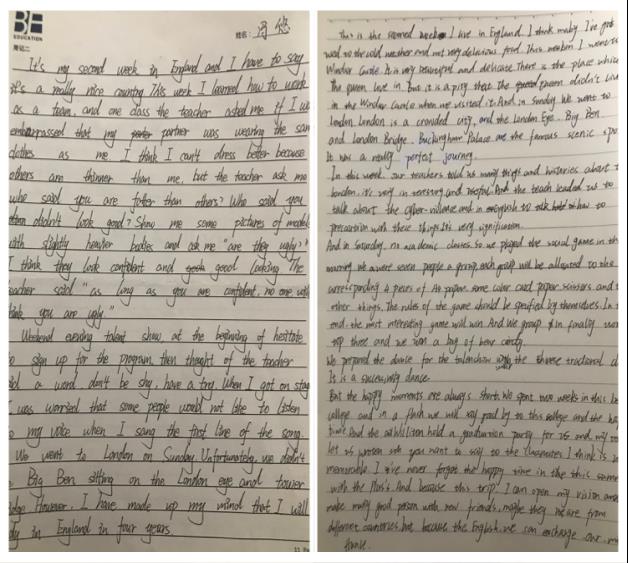 EDUCATION
姓名:
周记二
It's my second week in England and I have to say
it's a really nice country. This week I learned how to work
as a team, and one class the teacher asked me if I w
embarrassed that my partner was wearing the sam
clothes as me. I think I can't dress better because
others are thinner than me, but the teacher ask me
who said you are fatter than others? Who said you
didn't look good? Show me some pictures of models
with slightly heavier bodies and ask me "are they ugly?"
I think they look confident and good looking. The
eacher said "as long as you are confident, no one will
hink you are ugly."
Weekend evening talent show, at the beginning of hesitate
o sign up for the program, then thought of the teacher
id a word don't be shy, have a try. When I got on stag
I was worried that some people would not like to listen
o my voice when I sang the first line of the song
We went to London on Sunday. Unfortunately, we didn't
Big Ben sitting on the London eye and tower
idge However, I have made up my mind that I will
dy in England in four years.
This is the second week I live in England. I think maby I've got
used to the cold weather and not very delicious food. This weeken I went to
Windsor Castle. It is very beautiful and delicate. There is the place which
The queen live in. But it is a pity that the queen didn't live
in the Windsor Castle when we visited it. And in Sunday We went to
London. London is a crowded city, and the London Eye. Big Ben
and London Bridge. Buckingham Palace are the famous scenic spo
It was a really perfect journey.
In this week. Our teachers told us many things and histories about t
london, it's very interesting and useful. And the teach leaded us to
talk about the cyber-violence and how to
precaution with these things. It's very signification.
And in Saturday, no academic classes. So we played the social game in th
morning. we were seven people a group, each group will be allowed to the
corresponding 4 pieces of A4 paper, some color card paper, scissors and t
other things. The rules of the game should be specified by themselves. In t
end, the most interesting game will win. And We group in finally won
top three and we won a bag of bear candy.
We prepared the dance for the talent show with the chinese tractional d
It is a successfully dance.
But the happy moments are always short. We spent two weeks in this b
college and in a flash we will say good by to this college and the ha
time. And the held a graduation party for us and
let us you want to say to the I think is
memorable. I give never forgot the happy time in the this some
with the Plus's. And because this trip, I can open my vision and
make many good person with new friends, maybe they are from
different countries, but because the English, we can exchange our m